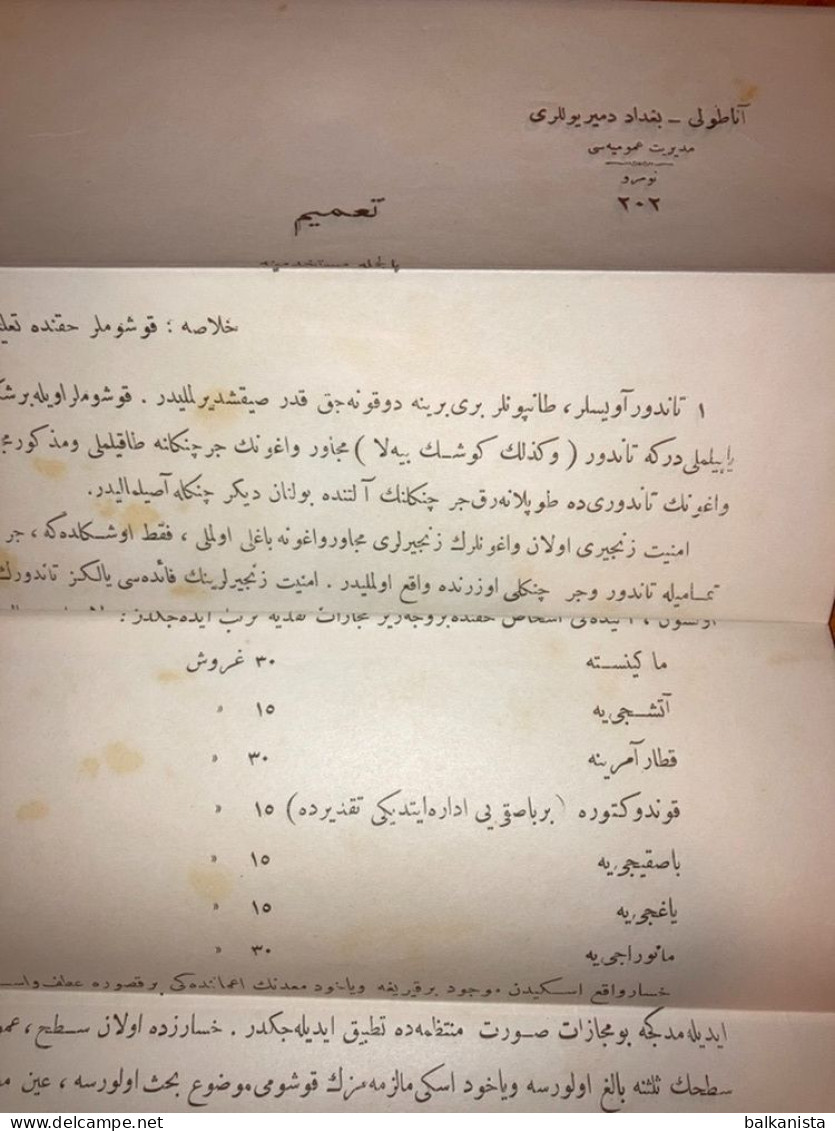 آناطولی – بغداد دمیریوللری
مدیریت عمومیه‌سی
نومرو
٢٠٢
تعمیم
خلاصه : قوشوملر حقنده
١ تاندور آویسلر، طانپونلر بری برینه دوقونه‌جق قدر صیقشدیرلملیدر . قوشوملر اویله بر
یاپیلملی درکه تاندور ( وكذلك كوشـك بیه‌لا ) مجاور واغونك جر چنكانه طاقیلملی ومذكور
واغونك تاندوری ده طوپلانه‌رق جر چنكلنك آلتنده بولنان دیكر چنكله آصیلمالیدر.
امنیت زنجیری اولان واغونلرك زنجیرلری مجاور واغونه باغلی اولملی ، فقط اوشكلده‌كه ، جر
تمامیله تاندور وجر چنكلی اوزرنده واقع اولملیدر . امنیت زنجیرلرینك فائده‌سی یالكز تاندورك
ماكینسته ٣٠ غروش
آتشـجی‌یه ١٥ »
قطار آمرینه ٣٠ »
قوندوكتوره (برباصقی‌یی اداره ایتدیكی تقدیرده) ١٥ »
باصقیجی‌یه ١٥ »
یاغجی‌یه ١٥ »
مانوراجی‌یه ٣٠ »
خسار واقع اسكیدن موجود بر قیریغه ویاخود معدنك اعمالنده‌كی بر قصوره عطف
ایدیله‌مدكجه بو مجازات صورت منتظمه‌ده تطبیق ایدیله‌جكدر . خسارزده اولان سـطح ،
سطحك ثلثنه بالغ اولورسه ویاخود اسكی مالزمه‌مزك قوشومی موضوع بحث اولورسه ، عین
balkanista